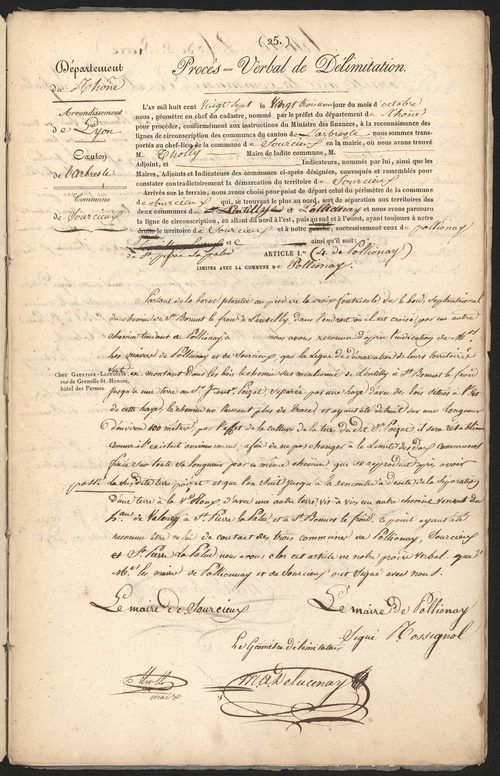 (25.)
Département
du Rhône
Arrondissement
de Lyon
Canton
de Larbresle
Commune
de Sourcieux
Chez Gaultier-Laguionie
rue de Grenelle St-Honoré,
hôtel des Fermes.
Procès-Verbal de Délimitation.
L'AN mil huit cent Vingt Sept le Vingt troisième jour du mois d'octobre
nous, géomètre en chef du cadastre, nommé par le préfet du département du Rhône
pour procéder, conformément aux instructions du Ministre des finances, à la reconnaissance des
lignes de circonscription des communes du canton de Larbresle nous sommes trans-
portés au chef-lieu de la commune de Sourcieux en la mairie, où nous avons trouvé
M. Tholly Maire de ladite commune, M.
Adjoint, et Indicateurs, nommés par lui, ainsi que les
Maires, Adjoints et Indicateurs des communes ci-après désignées, convoqués et rassemblés pour
constater contradictoirement la démarcation du territoire de Sourcieux
Arrivés sur le terrain, nous avons choisi pour point de départ celui du périmètre de la commune
de Sourcieux qui, se trouvant le plus au nord, sert de séparation aux territoires des
deux communes de Lentilly et Pollionay et nous avons parcouru
la ligne de circonscription, en allant du nord à l'est, puis au sud et à l'ouest, ayant toujours à notre
droite le territoire de Sourcieux et à notre gauche, successivement ceux de pollionay
et
de St pierre La palud ainsi qu'il suit:
ARTICLE 1er (4. de Pollionay)
LIMITES AVEC LA COMMUNE DE Pollionay.
Partant de la borne plantée au pied de la croix
du chemin de St Bonnet le froid à Lentilly, dans l'endroit où il est croisé par un autre
chemin tendant de Pollionay à nous avons reconnu d'après l'indication de Mrs
les maires de Pollionay et de Sourcieux, que la Ligne de démarcation de leurs territoires
suit, en montant dans les bois le chemin sus mentionné de Lentilly à St Bonnet le froid
jusqu'à une terre au Sr séparée par une haye d'avec des bois situés à l'Est
de cette haye le chemin ne laissant plus de trace et ayant été détruit sur une Longueur
d'environ 100 mètres, par l'effet de la culture de la terre du dit Sr il sera rétabli
comme il existait anciennement, afin de ne pas changer à la Limite des deux communes
fixée sur toute sa longueur par ce même chemin qui se reproduit après avoir
passé la susdite terre et que l'on suit jusqu'à la rencontre à droite de la séparation
d'une terre à la Ve d'avec une autre terre, vis à vis un autre chemin venant du
hau de Valency à St Pierre la Palud et à St Bonnet le froid. Ce point ayant été
reconnu être celui de contact des trois communes de Pollionay, Sourcieux
et St Pierre La Palud nous avons clos cet article de notre procès verbal que
Mrs les maires de Pollionay et de Sourcieux ont Signé avec nous.
Le maire de Sourcieux
Le maire de Pollionay
Signé Rossignol
Le Géomètre délimitateur
Tholly
maire
Delucenay